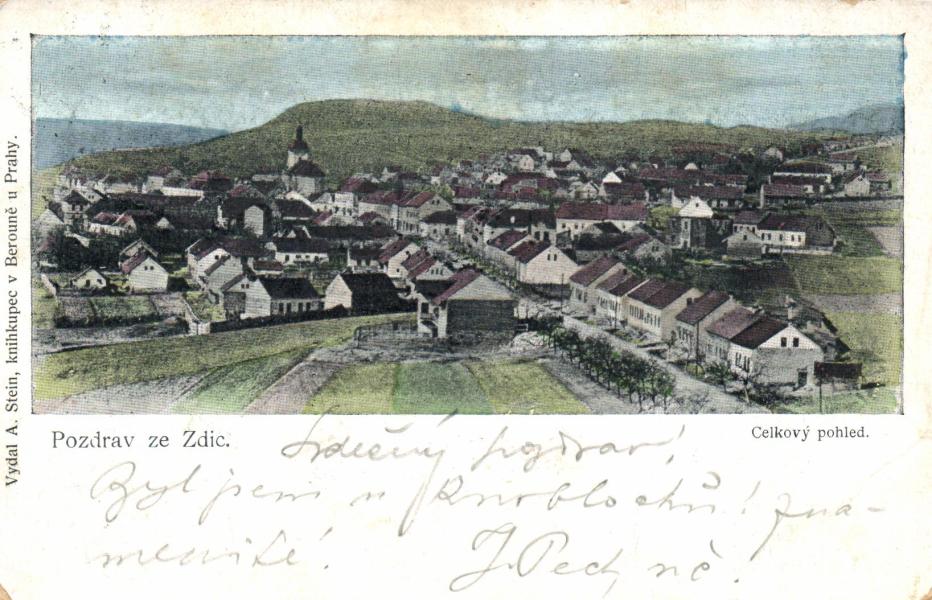 Vydal A. Stein, knihkupec v Berouně u Prahy.
Pozdrav ze Zdic.
Celkový pohled.
Srdečný pozdrav!
Byl jsem u Knoblochů! Zna-
menité!
J. Pech, nč.